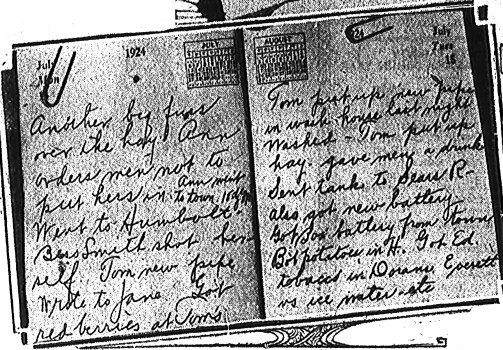 July
Mon
1924
JULY
Another big fuss
over the hay, Ann
orders men not to
put hers in. Ann went
to town
Went to Humbolt
Bess Smith shot her
self. Tom new pipe
Wrote to Jane Got
red berries at Toms
AUGUST
24
July
Tues
15
Tom put up new pipe
in wash house last night
Washed - Tom put up
hay. gave men a drink
Sent tank to Sears R-
also got new battery
Got battery from town
Got potatoes in H. Got Ed.
tobacco in Dorans Everett
vs ice water - etc